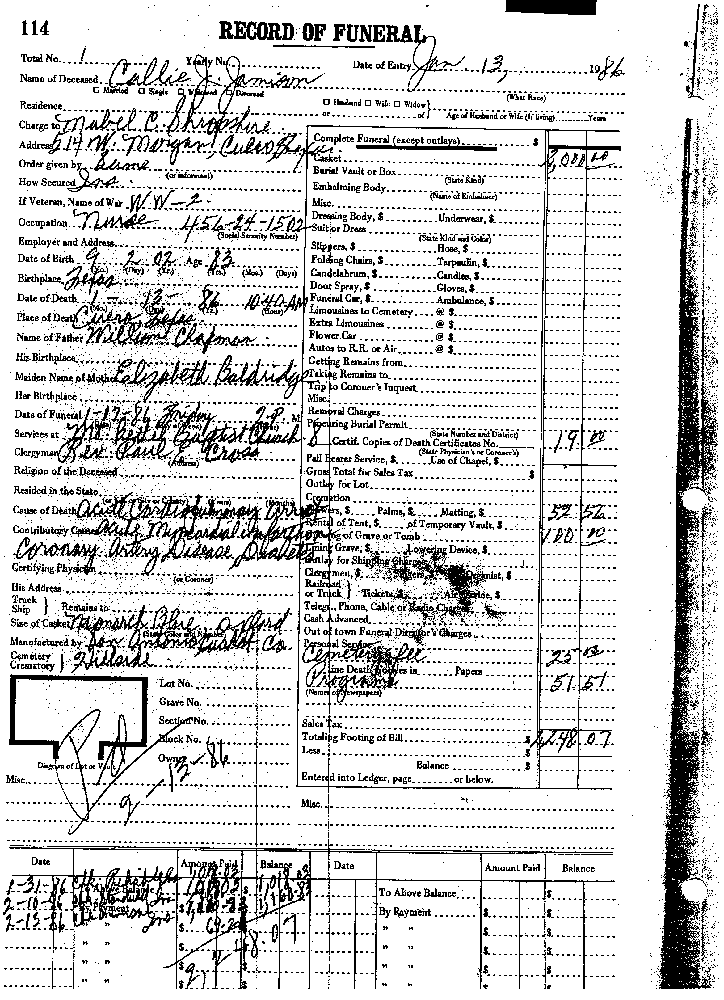 114
RECORD OF FUNERAL
Total No. 1 Yearly No. Date of Entry Jan 13, 1986
Name of Deceased Callie J. Jamison
☐ Married ☐ Single ☐ Widowed ☐ Divorced (What Race)
Residence ☐ Husband ☐ Wife ☐ Widow
or of Age of Husband or Wife (if living) Years
Charge to Mabel C. Shropshire
Address 214 W. Morgan,
Order given by Same
(or informant)
How Secured Ins.
If Veteran, Name of War W W - 2
Occupation Nurse 456-24-1502
(Social Security Number)
Employer and Address
Date of Birth 9 2 02 Age 83
(Mo.) (Day) (Yr.) (Yrs.) (Mos.) (Days)
Birthplace Texas
Date of Death 1 - 13 - 86 10:40 AM
Place of Death Cuero Texas
Name of Father William Chapman
His Birthplace
Maiden Name of Mother Elizabeth Baldridge
Her Birthplace
Date of Funeral 1-17-86 Friday 2 P. M
Services at Baptist Church
Clergyman Rev. Paul E. Cross
(Address)
Religion of the Deceased
Resided in the State
Cause of Death Acute Cardiopulmonary Arrest
Contributory Causes Acute Myocardial Infarction
Coronary Artery Disease Diabetes
Certifying Physician
(or Coroner)
His Address
Truck
Ship Remains to
Size of Casket Monarch Blue
Manufactured by San Antonio Casket Co.
Cemetery
Crematory Hillside
Lot No.
Grave No.
Section No.
Block No.
Owner
Diagram of Lot or Vault
Pd
9-12-86
Misc.
Complete Funeral (except outlays) $
Casket 2,000 00
Burial Vault or Box
(State Kind)
Embalming Body
(Name of Embalmer)
Misc.
Dressing Body, $ Underwear, $
Suit or Dress
(State Kind and Color)
Slippers, $ Hose, $
Folding Chairs, $ Tarpaulin, $
Candelabrum, $ Candles, $
Door Spray, $ Gloves, $
Funeral Car, $ Ambulance, $
Limousines to Cemetery @ $
Extra Limousines @ $
Flower Car @ $
Autos to R.R. or Air @ $
Getting Remains from
Taking Remains to
Trip to Coroner's Inquest
Misc.
Removal Charges
Procuring Burial Permit
(State Number and District)
8 Certif. Copies of Death Certificates No. 19 00
(State Physician's or Coroner's)
Pall Bearer Service, $ Use of Chapel, $
Gross Total for Sales Tax $
Outlay for Lot
Cremation
Flowers, $ Palms, $ Matting, $ 52 56
Rental of Tent, $ of Temporary Vault, $
Opening of Grave or Tomb 100 00
Lining Grave, $ Lowering Device, $
Outlay for Shipping Charges
Clergyman, $ Singers, Organist, $
Railroad
or Truck Tickets, $ Air Service, $
Telegr., Phone, Cable or Radio Charges
Cash Advanced
Out of town Funeral Director's Charges
Personal Service
Cemetery fee 25 00
Time Death Notices in Papers
Programs 51 51
(Names of Newspapers)
Sales Tax
Totaling Footing of Bill $ 2,248.07
Less
Balance $
Entered into Ledger, page or below.
Misc.
Date Amount Paid Balance Date Amount Paid Balance
1-31-86 To Above Balance $
2-10-86 By Payment $
2-13-86